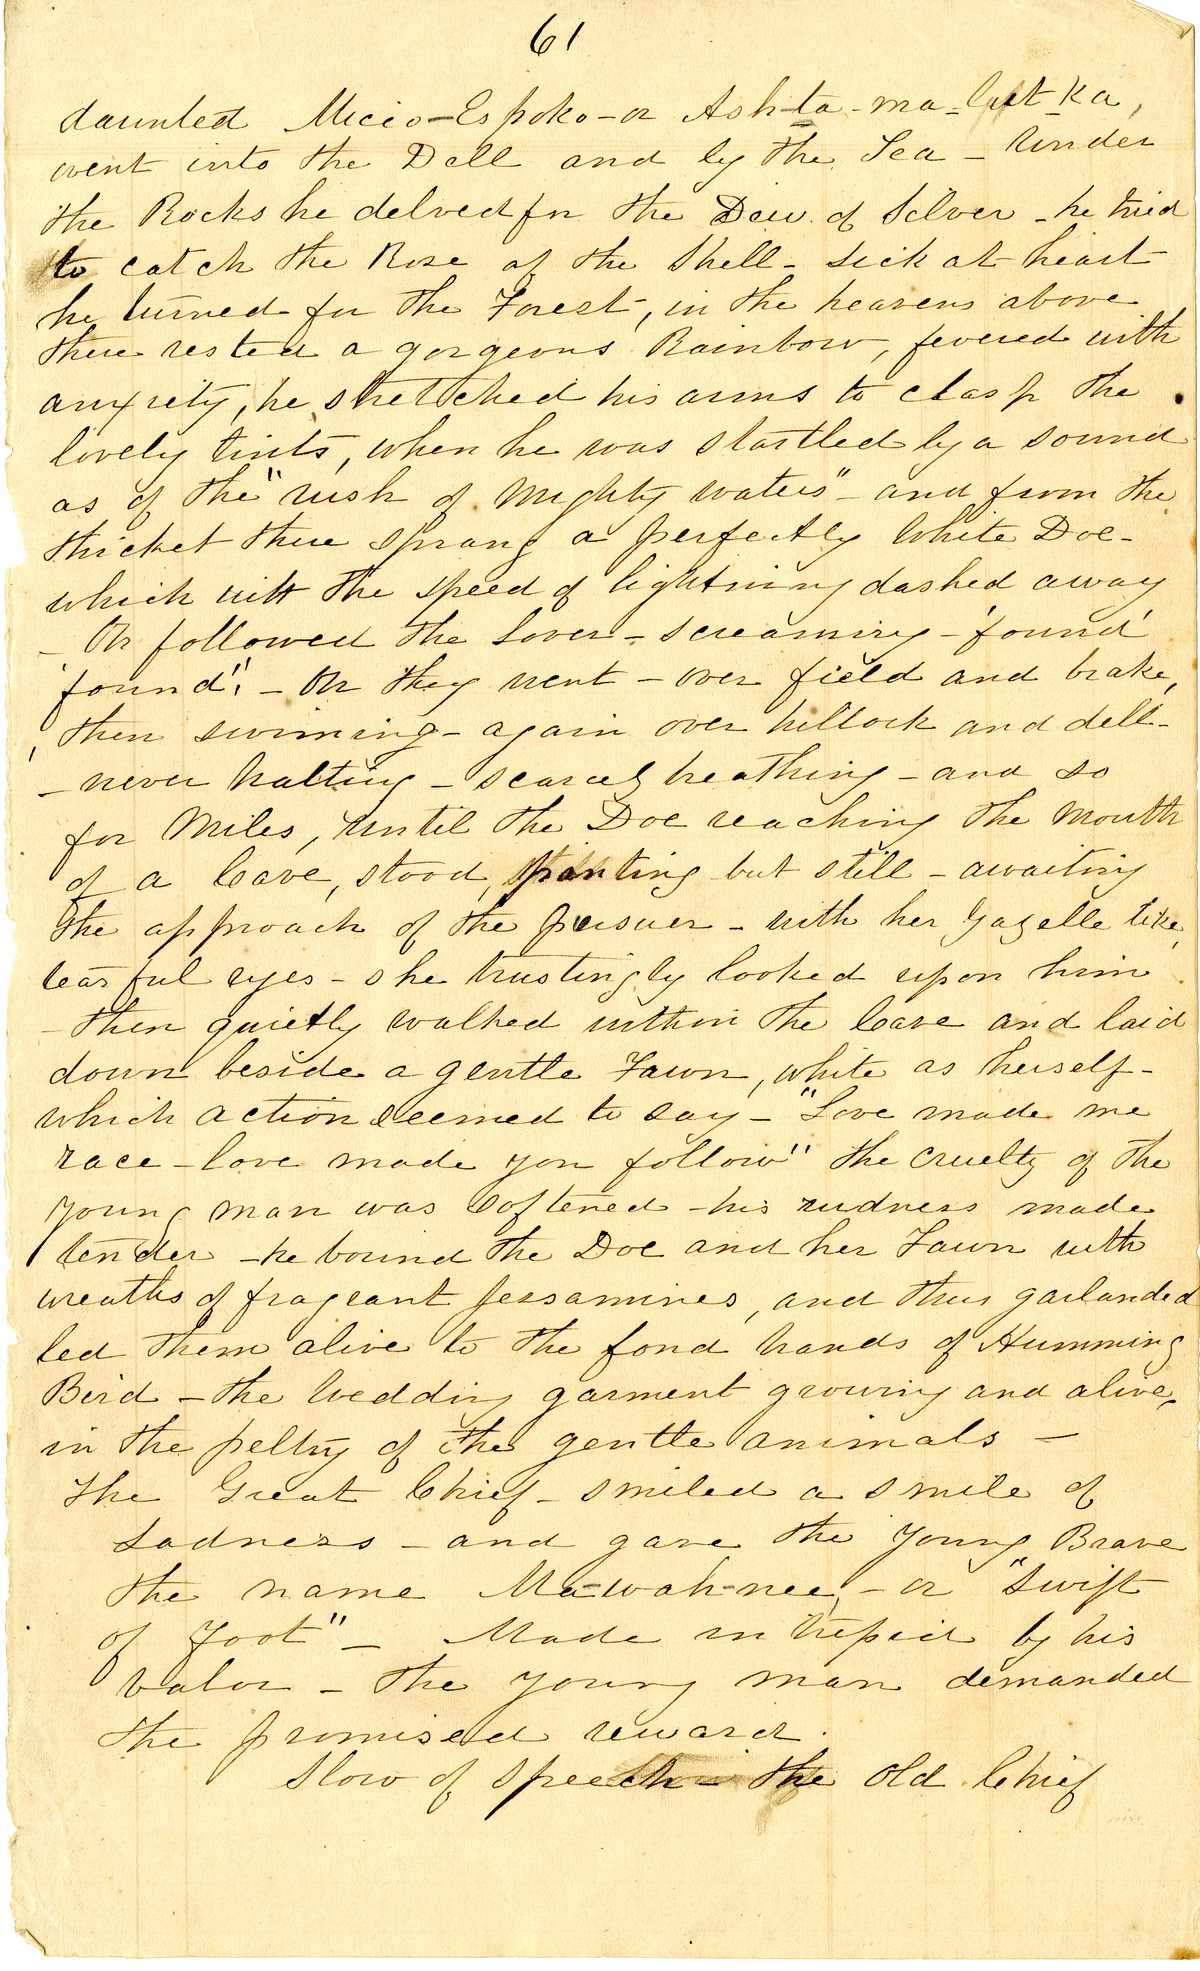 61
daunted Micco-Espoko-or Ash-ta-ma-lut-ka,
went into the Dell and by the Sea - Under
the Rocks he delved for the Dew of Silver - he tried
to catch the Rose of the Shell - sick at heart
he turned for the Forest, in the heavens above
there rested a gorgeous Rainbow, fevered with
anxiety, he stretched his arms to clasp the
lovely tints, when he was startled by a sound
as of the "rush of Mighty waters" - and from the
thicket there sprang a perfectly White Doe -
which with the speed of lightning dashed away
- On followed the Lover - screaming - 'found'
'found'! - On they went - over field and brake,
then swiming - again over hillock and dell -
- never halting - scarcely breathing - and so
for Miles, until the Doe reaching the Mouth
of a Cave, stood, panting but still - awaiting
the approach of the pursuer - with her Gazelle like,
tearful eyes - she trustingly looked upon him
- then quietly walked within the Cave and laid
down beside a gentle Fawn, white as herself -
which action seemed to say - "Love made me
race - love made you follow" the cruelty of the
young man was softened - his rudness made
tender - he bound the Doe and her Fawn with
wreaths of fragrant Jessamines, and thus garlanded
led them alive to the fond hands of Humming
Bird - the Wedding garment growing and alive,
in the peltry of the gentle animals -
The Great Chief - smiled a smile of
sadness - and gave the Young Brave
the name Ma-wah-nee, - or "Swift
of foot" - Made intrepid by his
valor - the young man demanded
the promised reward.
Slow of speech - the Old Chief